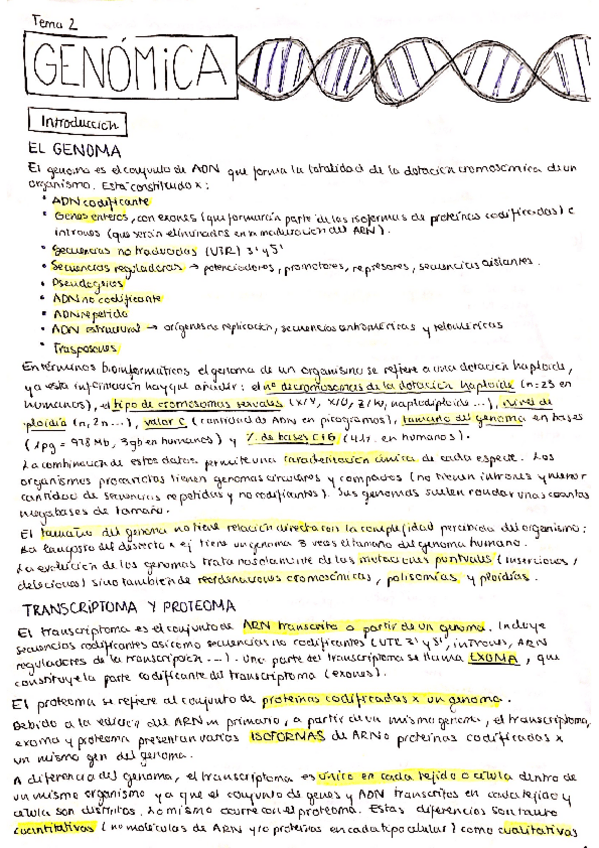 Tema 2
GENÓMICA
Introducción
EL GENOMA
El genoma es el conjunto de ADN que forma la totalidad de la dotación cromosómica de un
organismo. Está constituido x:
• ADN codificante
• Genes enteros, con exones (que formarán parte de las isoformas de proteínas codificadas) e
intrones (que serán eliminados en la maduración del ARN).
• Secuencias no traducidas (UTR) 3' y 5'
• Secuencias reguladoras → potenciadores, promotores, represores, secuencias aislantes.
• Pseudogenes
• ADN no codificante
• ADN repetido
• ADN estructural → orígenes de replicación, secuencias centroméricas y teloméricas
• Trasposones
En términos bioinformáticos el genoma de un organismo se refiere a una dotación haploide,
ya esta información hay que añadir: el nº de cromosomas de la dotación haploide (n=23 en
humanos), el tipo de cromosomas sexuales (X/Y, X/0, Z/W, haplodiploide ...), nivel de
ploidía (n, 2n...), valor C (cantidad de ADN en picogramos), tamaño del genoma en bases
(1pg = 978 Mb, 3gb en humanos) y % de bases C+G (41%. en humanos).
La combinación de estos datos permite una caracterización única de cada especie. Los
organismos procariotas tienen genomas circulares y compactos (no tienen intrones y menor
cantidad de secuencias repetidas y no codificantes). Sus genomas suelen rondar unas cuantas
megabases de tamaño.
El tamaño del genoma no tiene relación directa con la complejidad percibida del organismo:
La langosta del desierto x ej tiene un genoma 3 veces el tamaño del genoma humano.
La evolución de los genomas trata no solamente de las mutaciones puntuales (inserciones /
deleciones) sino también de reordenaciones cromosómicas, polisomías y ploidías.
TRANSCRIPTOMA Y PROTEOMA
El transcriptoma es el conjunto de ARN transcrito a partir de un genoma. Incluye
secuencias codificantes así como secuencias no codificantes (UTR 3' y 5', intrones, ARN
reguladores de la transcripción ...). Una parte del transcriptoma se llama EXOMA, que
constituye la parte codificante del transcriptoma (exones).
El proteoma se refiere al conjunto de proteínas codificadas x un genoma.
Debido a la edición del ARNm primario, a partir de un mismo genoma, el transcriptoma,
exoma y proteoma presentan varias ISOFORMAS de ARN o proteínas codificadas x
un mismo gen del genoma.
A diferencia del genoma, el transcriptoma es único en cada tejido o célula dentro de
un mismo organismo ya que el conjunto de genes y ADN transcritos en cada tejido y
célula son distintos. Lo mismo ocurre con el proteoma. Estas diferencias son tanto
cuantitativas (nº moléculas de ARN y/o proteínas en cada tipo celular) como cualitativas